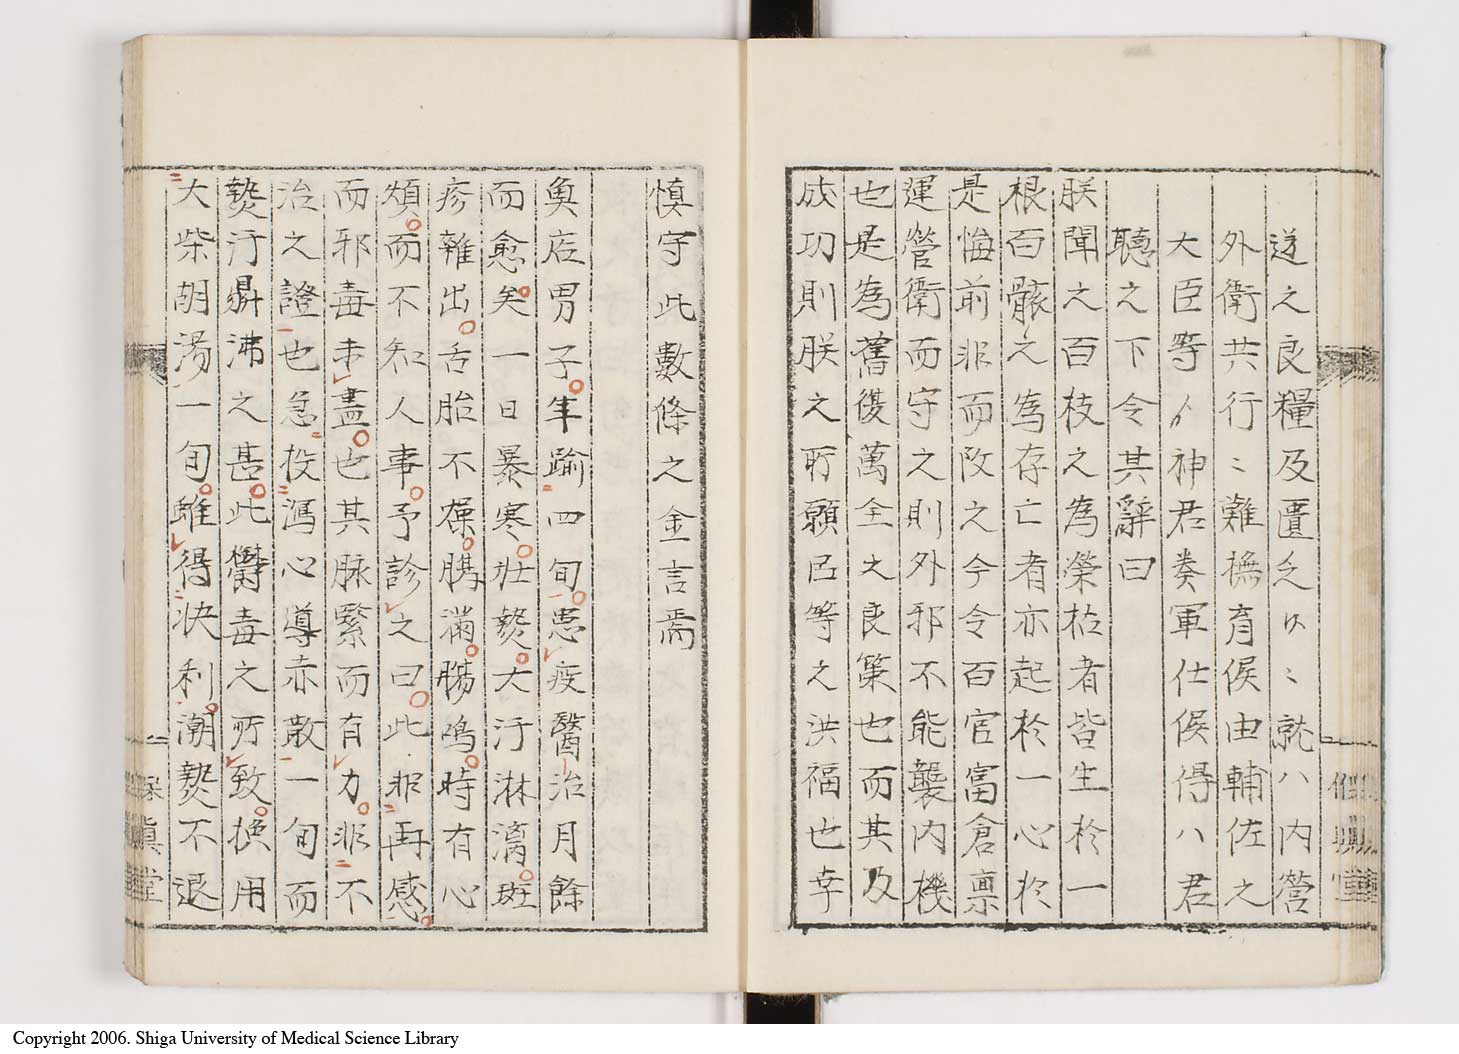 道之良糧及匱乏𪜈〻就ハ内營
外衛共行〻難撫育候由輔佐之
大臣等ゟ神君奏軍仕候得ハ君
聽之下令其辭曰
朕聞之百枝之為榮枯者皆生於一
根百骸之為存亡者亦起於一心於
是悔前非而改之今令百官富倉禀
運營衛而守之則外邪不能襲内機
也是為舊復萬全之良策也而其及
成功則朕之所願臣等之洪福也幸
慎守此數條之金言焉
魚店男子年踰四旬患疫醫治月餘
而愈矣一日暴寒壯𤍠大汗淋漓斑
疹雜出舌胎不燥腸滿腸鳴時有心
煩而不知人事予診之曰此非再感
而邪毒未盡也其脉緊而有力非不
治之證也急投瀉心導赤散一旬而
𤍠汗鼎沸之甚此欝毒之所致換用
大柴胡湯一旬雖得快利潮𤍠不退
保眞堂